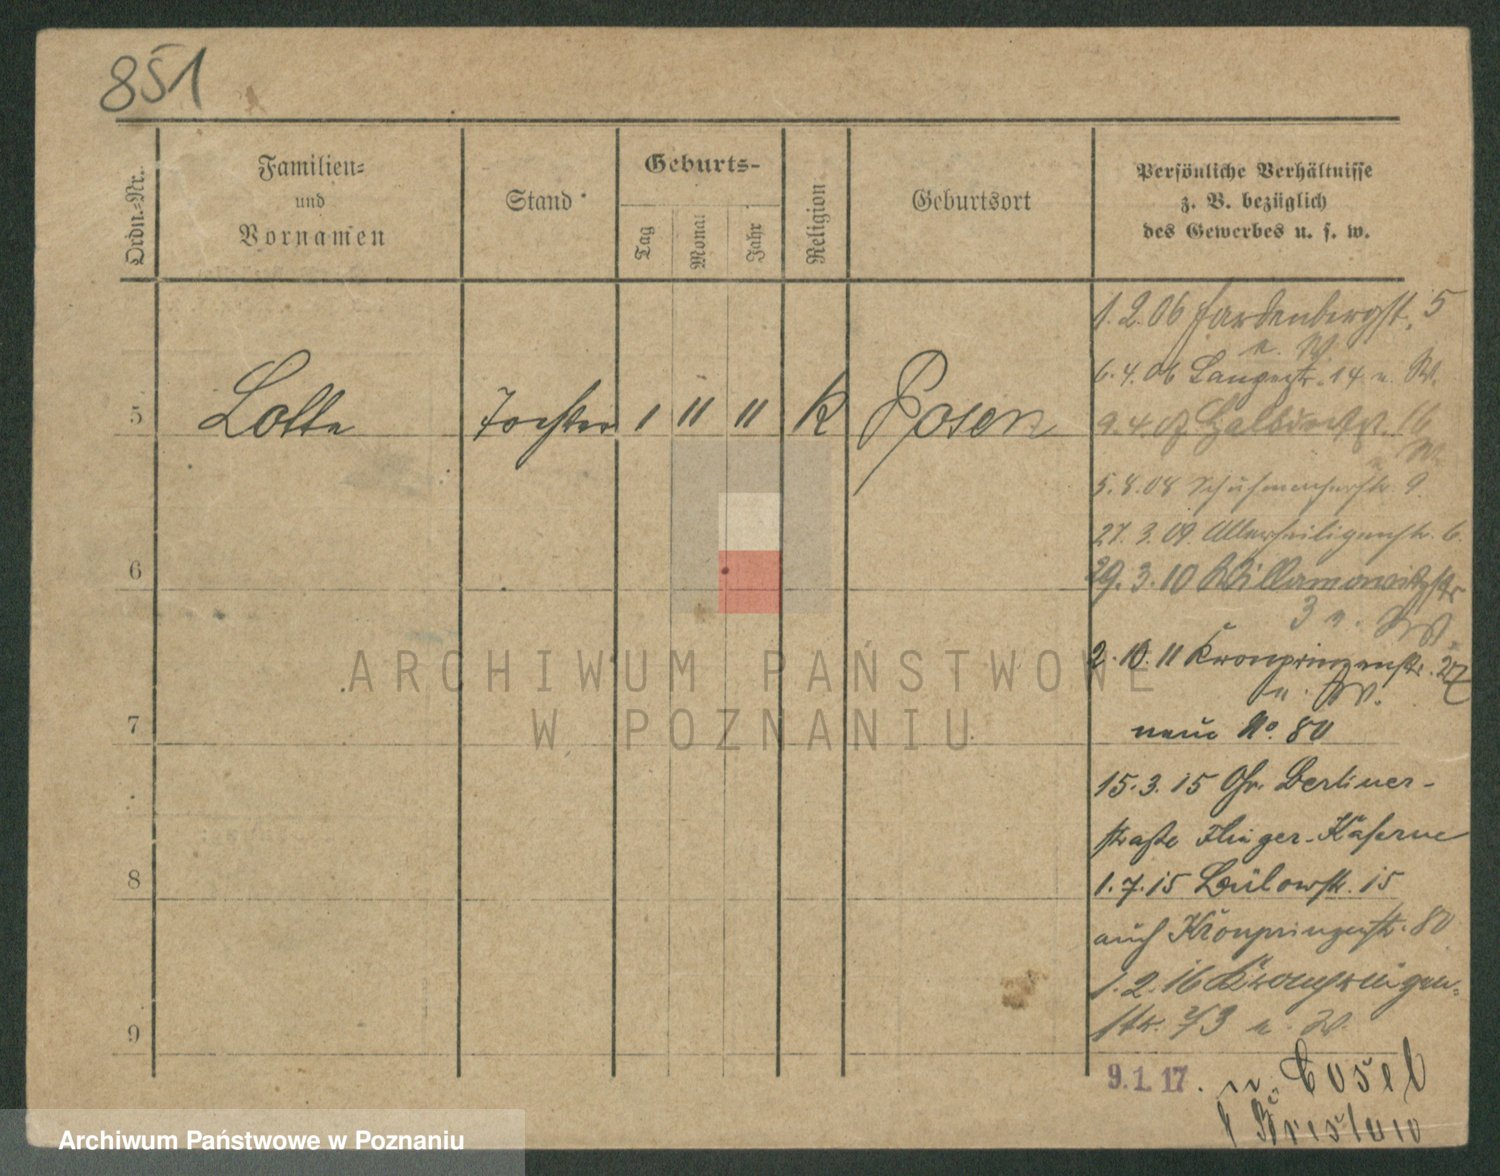 851
Ordn.-Nr.
Familien-
und
Vornamen
Stand
Geburts-
Tag
Monat
Jahr
Religion
Geburtsort
Persönliche Verhältnisse
z. B. bezüglich
des Gewerbes u. s. w.
5 Lotte Tochter 1 11 11 k Posen
6
7
8
9
1.2.06 Hardenbergst. 5
u. W.
6.4.06 Langestr. 14 u. W.
9.4.07 Halbdorfst. 16
u. W.
5.8.08 Schuhmacherstr. 9.
27.3.09. Allerheiligenstr. 6.
29.3.10 Willamowitzstr
3 u. W.
2.10.11 Kronprinzenstr. 27
u. W.
neue No. 80
15.3.15 Gr. Berliner-
straße Flieger-Kaserne
1.7.15 Bülowstr. 15
auch Kronprinzenstr. 80
1.2.16 Kronprinzen-
str. 73 u. W.
9.1.17. n. Cosel
b Breslau
ARCHIWUM PAŃSTWOWE
W POZNANIU
Archiwum Państwowe w Poznaniu